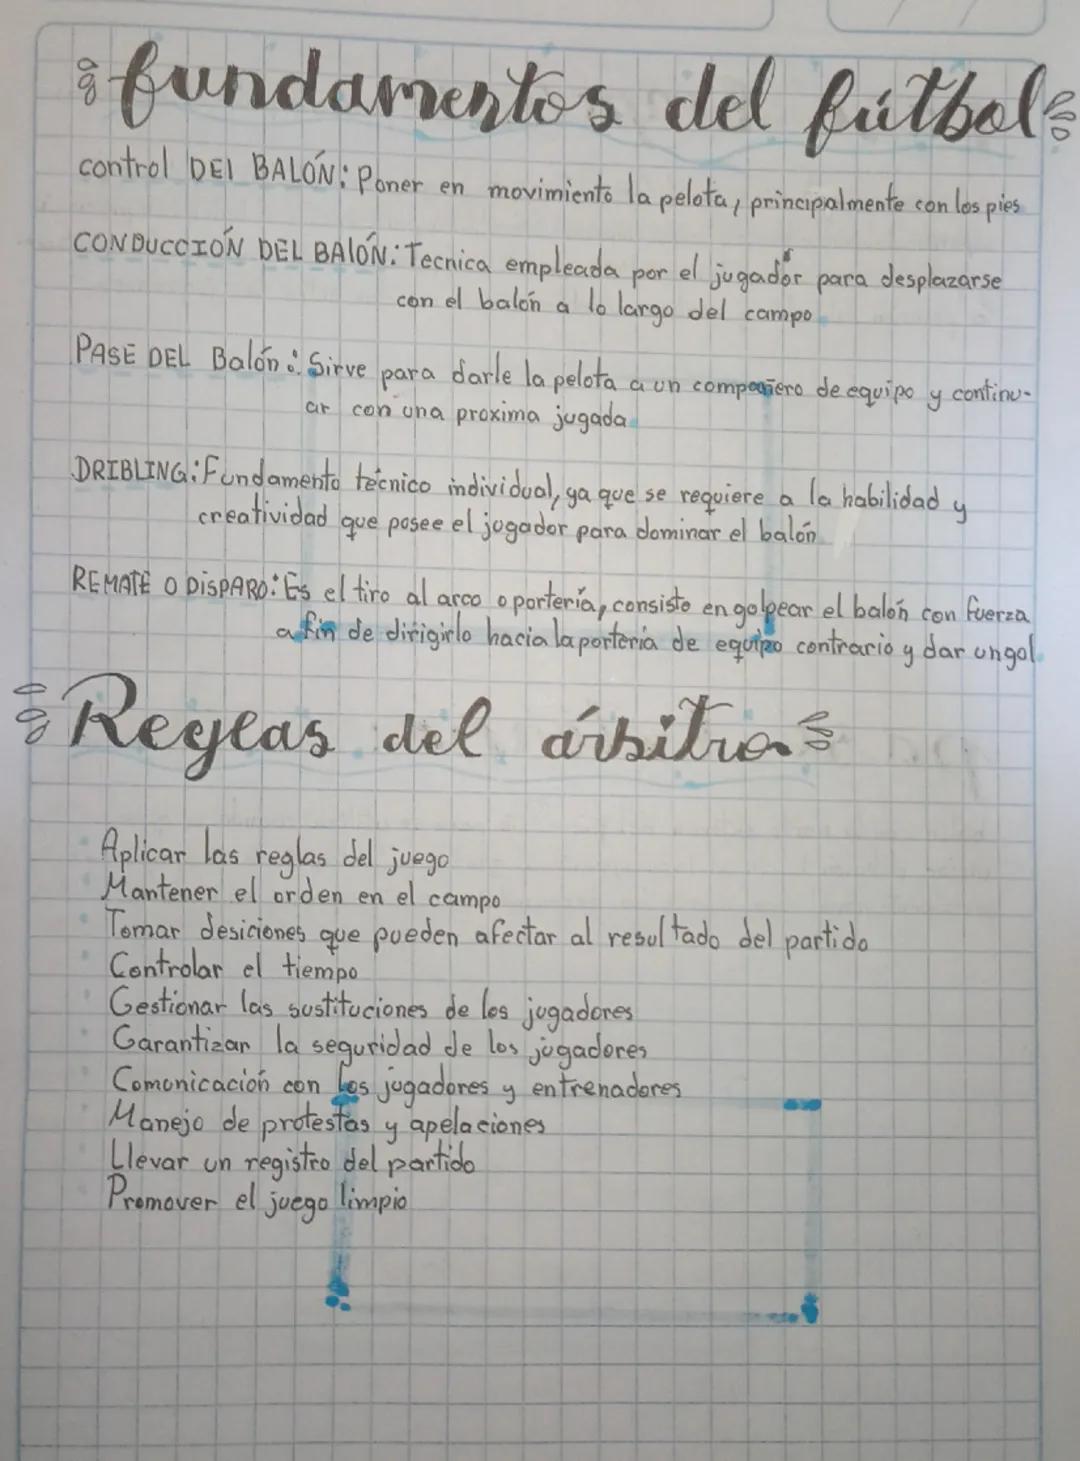 fundamentos del fútbol
control DEl BALÓN: Poner en movimiento la pelota, principalmente con los pies
CONDUCCIÓN DEL BAlÓN: Tecnica empleada por el jugador para desplazarse
con el balón a lo largo del campo
PASE DEL Balón: Sirve para darle la pelota a un compañero de equipo y continu-
ar con una proxima jugada
DRIBLING: Fundamento técnico individual, ya que se requiere a la habilidad y
creatividad que posee el jugador para dominar el balón
REMATE O DiSPARO: Es el tiro al arco o portería, consiste en golpear el balón con fuerza
a fin de dirigirlo hacia la portería de equipo contrario y dar un gol
Reglas del árbitro
Aplicar las reglas del juego
Mantener el orden en el campo
Tomar desiciones que pueden afectar al resultado del partido
Controlar el tiempo
Gestionar las sustituciones de los jugadores
Garantizar la seguridad de los jugadores
Comunicación con los jugadores y entrenadores
Manejo de protestas y apelaciones
Llevar un registro del partido
Promover el juego limpio